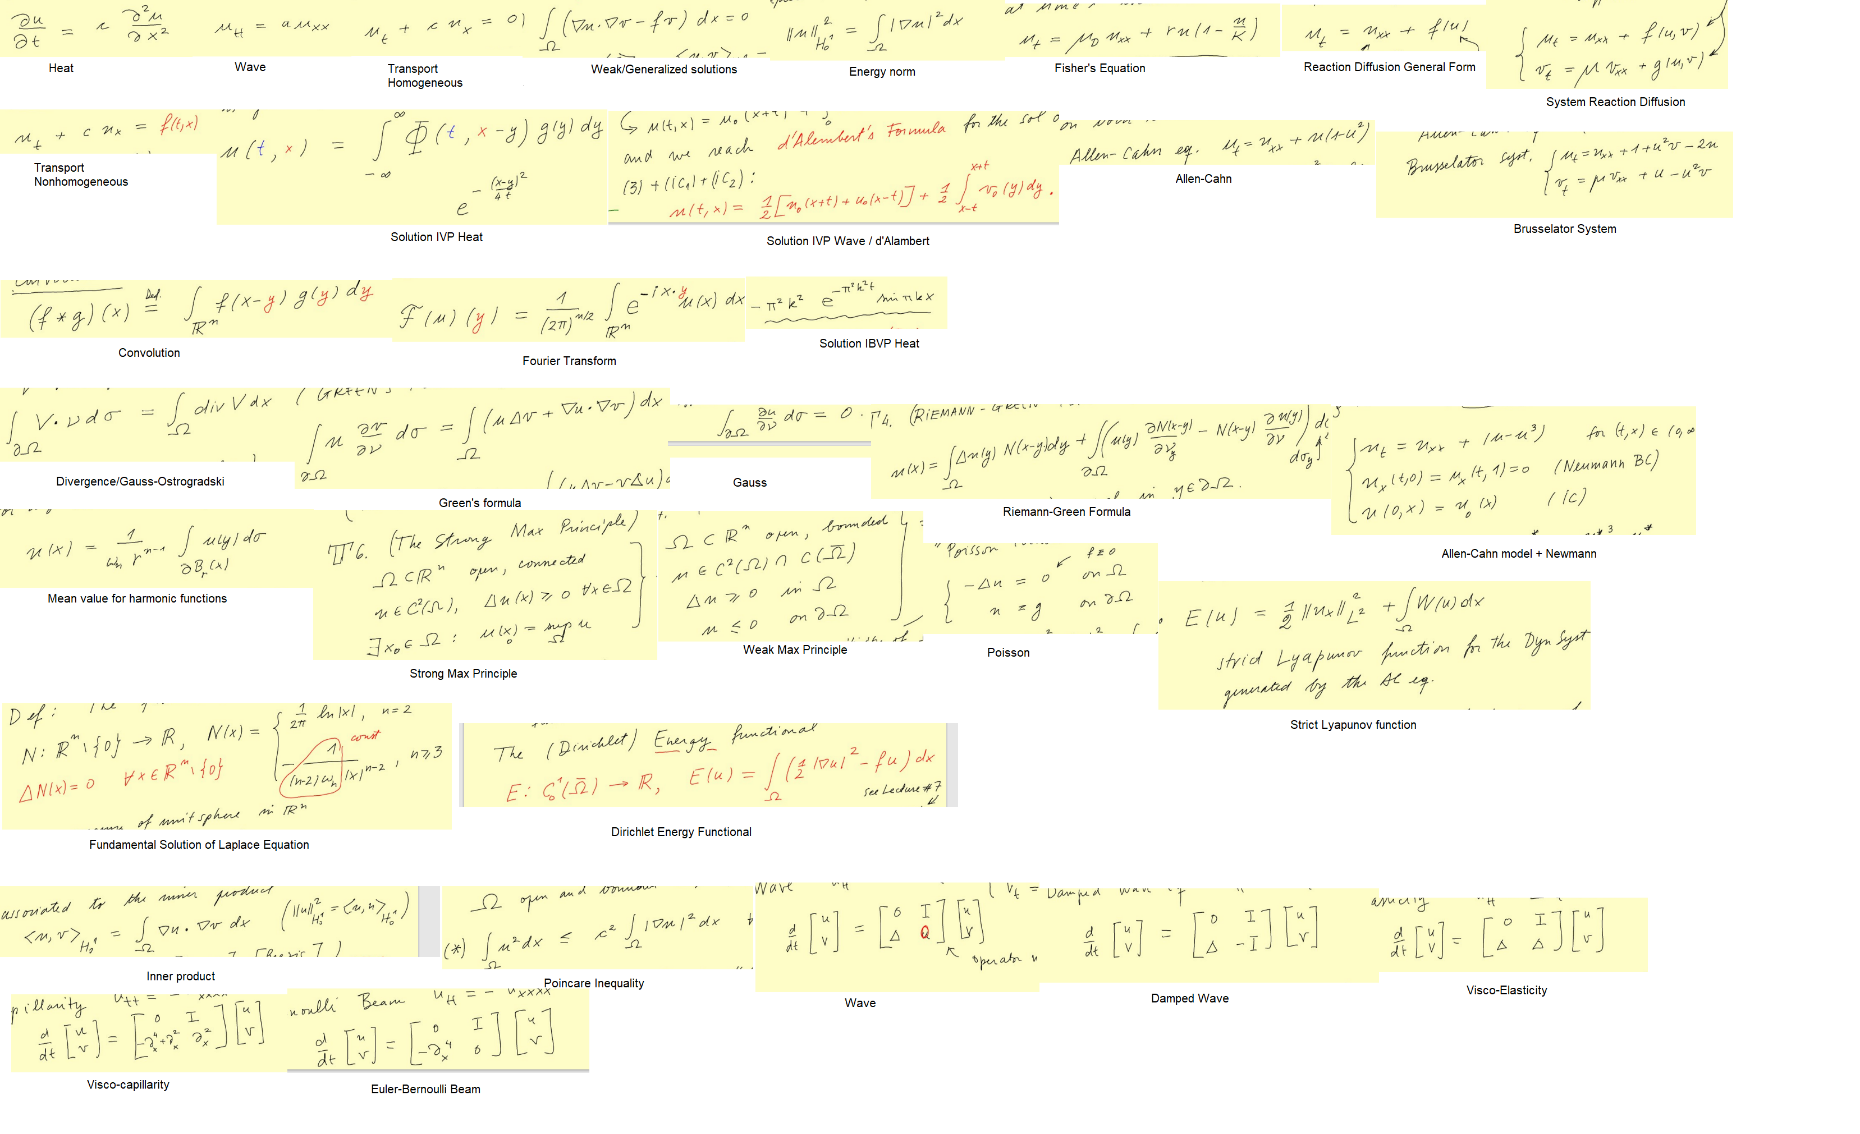 ∂u/∂t = c ∂²u/∂x²
Heat
u_tt = a u_xx
Wave
u_t + c u_x = 0)
Transport
Homogeneous
∫_Ω (∇u·∇v − fv) dx = 0
Weak/Generalized solutions
‖u‖²_{H₀¹} = ∫_Ω |∇u|² dx
Energy norm
u_t = μ_D u_xx + ru(1 − u/K)
Fisher's Equation
u_t = u_xx + f(u)
Reaction Diffusion General Form
{ u_t = u_xx + f(u,v)
v_t = μ v_xx + g(u,v)
System Reaction Diffusion
u_t + c u_x = f(t,x)
Transport
Nonhomogeneous
u(t,x) = ∫_{−∞}^{∞} Φ(t, x−y) g(y) dy
e^{−(x−y)²/4t}
Solution IVP Heat
u(t,x) = u₀(x+t) +
and we reach d'Alembert's Formula for the sol
(3)+(IC₁)+(IC₂):
u(t,x) = ½[u₀(x+t) + u₀(x−t)] + ½ ∫_{x−t}^{x+t} v₀(y) dy.
Solution IVP Wave / d'Alambert
Allen-Cahn eq. u_t = u_xx + u(1−u²)
Allen-Cahn
Brusselator syst. { u_t = u_xx + 1 + u²v − 2u
v_t = μ v_xx + u − u²v
Brusselator System
(f * g)(x) =^{Def.} ∫_{ℝⁿ} f(x−y) g(y) dy
Convolution
F(u)(y) = 1/(2π)^{n/2} ∫_{ℝⁿ} e^{−ix·y} u(x) dx
Fourier Transform
−π²k² e^{−π²k²t} sin πkx
Solution IBVP Heat
∫_{∂Ω} V·ν dσ = ∫_Ω div V dx
Divergence/Gauss-Ostrogradski
(GREEN'S
∫_{∂Ω} u ∂v/∂ν dσ = ∫_Ω (uΔv + ∇u·∇v) dx
(uΔv − vΔu)
Green's formula
∫_{∂Ω} ∂u/∂ν dσ = 0.
Gauss
T4. (RIEMANN-GREEN
u(x) = ∫_Ω Δu(y) N(x−y) dy + ∫_{∂Ω} (u(y) ∂N(x−y)/∂ν_y − N(x−y) ∂u(y)/∂ν) dσ_y
in y∈∂Ω.
Riemann-Green Formula
{ u_t = u_xx + (u−u³) for (t,x) ∈ (0,∞
u_x(t,0) = u_x(t,1) = 0 (Neumann BC)
u(0,x) = u₀(x) (IC)
Allen-Cahn model + Newmann
u(x) = 1/(ω_n r^{n−1}) ∫_{∂B_r(x)} u(y) dσ
Mean value for harmonic functions
T6. (The Strong Max Principle)
Ω⊂ℝⁿ open, connected
u∈C²(Ω), Δu(x) ≥ 0 ∀x∈Ω
∃x₀∈Ω : u(x₀) = sup_Ω u
Strong Max Principle
Ω ⊂ ℝⁿ open, bounded
u ∈ C²(Ω) ∩ C(Ω̄)
Δu ≥ 0 in Ω
u ≤ 0 on ∂Ω
Weak Max Principle
"Poisson f≡0
{ −Δu = 0 on Ω
u = g on ∂Ω
Poisson
E(u) = ½‖u_x‖²_{L²} + ∫_Ω W(u) dx
strict Lyapunov function for the Dyn Syst
generated by the AC eq.
Strict Lyapunov function
Def: The
N: ℝⁿ\{0} → ℝ, N(x) = { 1/2π ln|x|, n=2
−1/((n−2)ω_n |x|^{n−2}), n≥3
const
ΔN(x) = 0 ∀x∈ℝⁿ\{0}
of unit sphere in ℝⁿ
Fundamental Solution of Laplace Equation
The (Dirichlet) Energy functional
E: C₀¹(Ω̄) → ℝ, E(u) = ∫_Ω (½|∇u|² − fu) dx
see Lecture #7
Dirichlet Energy Functional
associated to the inner product
⟨u,v⟩_{H₀¹} = ∫_Ω ∇u·∇v dx (‖u‖²_{H₀¹} = ⟨u,u⟩_{H₀¹})
Inner product
Ω open and
(*) ∫_Ω u² dx ≤ c² ∫_Ω |∇u|² dx
Poincare Inequality
Wave u_tt
d/dt [u v] = [0 I Δ 0] [u v]
operator
Wave
Damped wave eq
d/dt [u v] = [0 I Δ −I] [u v]
Damped Wave
d/dt [u v] = [0 I Δ Δ] [u v]
Visco-Elasticity
pillarity u_tt = −
d/dt [u v] = [0 I −∂_x⁴+∂_x² ∂_x²] [u v]
Visco-capillarity
noulli Beam u_tt = − u_xxxx
d/dt [u v] = [0 I −∂_x⁴ 0] [u v]
Euler-Bernoulli Beam